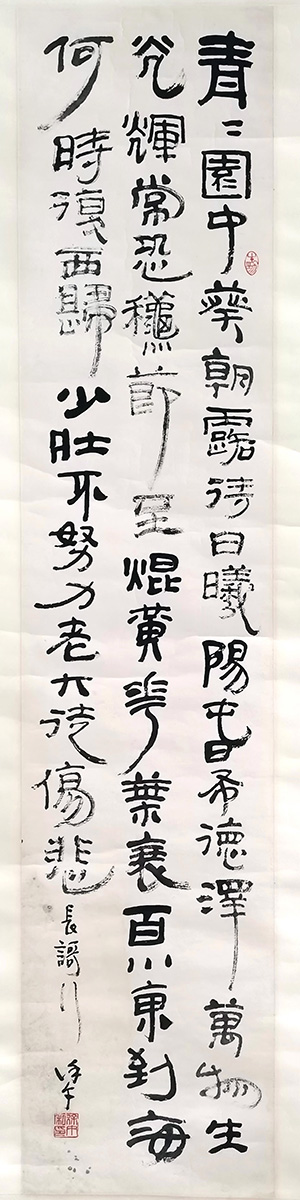 青〻園中葵朝露待日曦陽春布德澤萬物生
光輝常恐龝節至焜黃華葉衰百川東到海
何時復西歸少壯不努力老大徒傷悲
長謌行